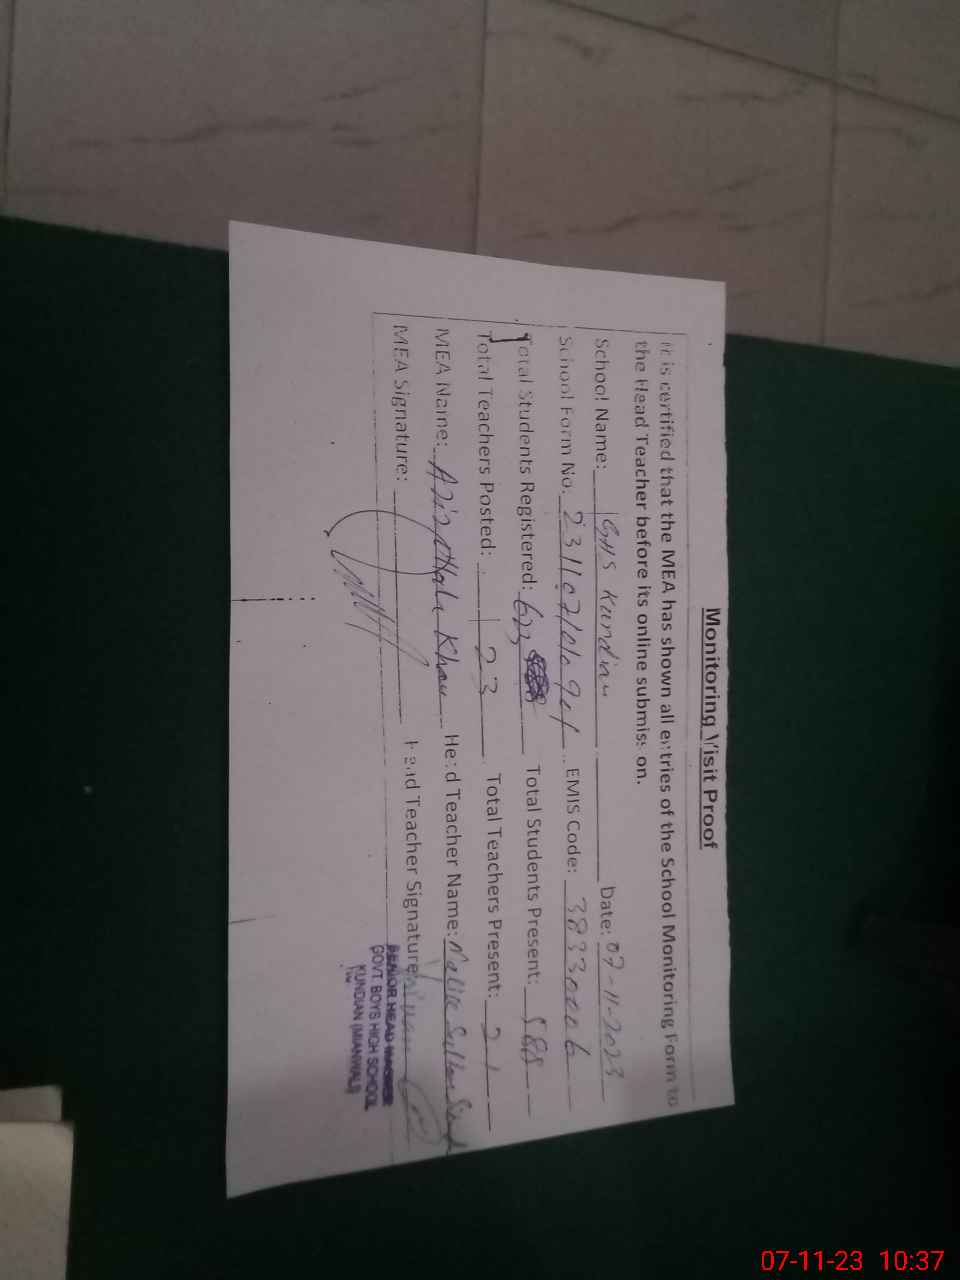 Monitoring Visit Proof
It is certified that the MEA has shown all entries of the School Monitoring Form to
the Head Teacher before its online submission.
School Name: GHS Kundian Date: 07-11-2023
School Form No. EMIS Code: 38330006
Total Students Registered: 623 Total Students Present: 588
Total Teachers Posted: 23 Total Teachers Present: 21
MEA Name: Khan Head Teacher Name:
MEA Signature: Head Teacher Signature
SENIOR HEAD MASTER
GOVT. BOYS HIGH SCHOOL
KUNDIAN (MIANWALI)
07-11-23 10:37